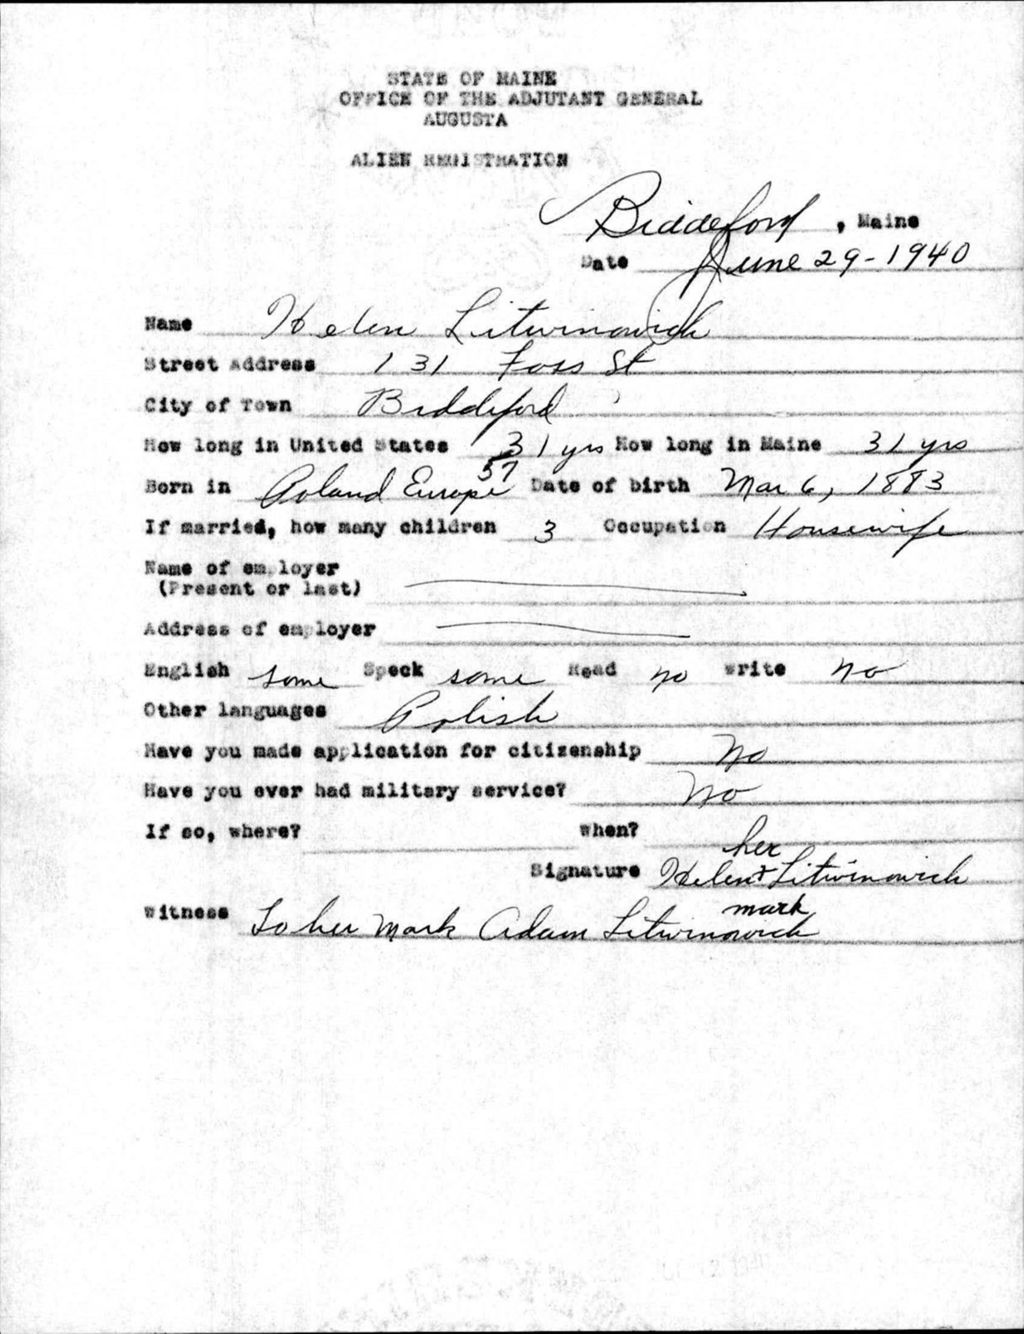 STATE OF MAINE
OFFICE OF THE ADJUTANT GENERAL
AUGUSTA
ALIEN REGISTRATION
Biddeford, Maine
Date June 29-1940
Name Helen Litwinowich
Street Address 131 Foss St
City of Town Biddeford
How long in United States 31 yrs How long in Maine 31 yrs
57
Born in Poland Europe Date of birth Mar 6, 1883
If married, how many children 3 Occupation Housewife
Name of employer
(Present or last)
Address of employer
English some Speck some Read no Write No
Other languages Polish
Have you made application for citizenship No
Have you ever had military service? No
If so, where? When?
her
Signature Helen + Litwinowich
mark
Witness To her mark Adam Litwinowich